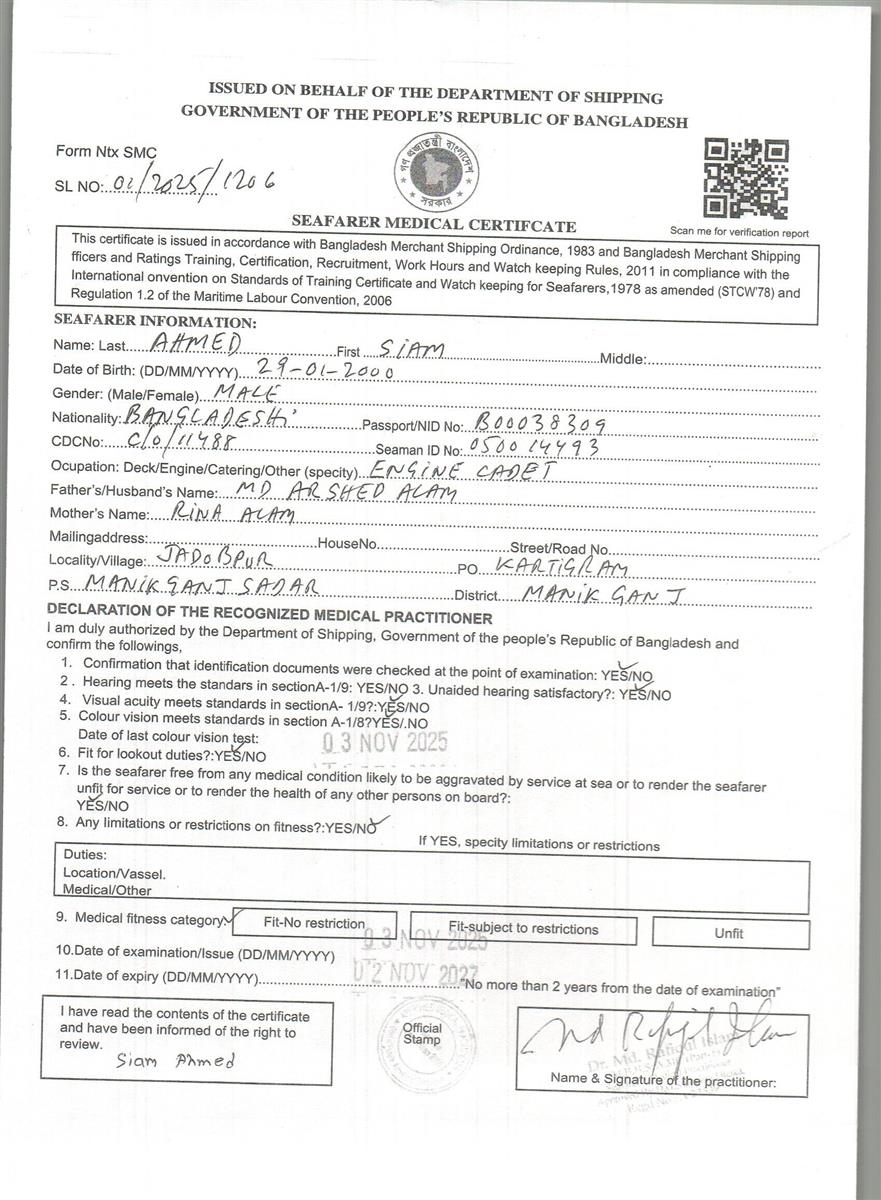 ISSUED ON BEHALF OF THE DEPARTMENT OF SHIPPING
GOVERNMENT OF THE PEOPLE'S REPUBLIC OF BANGLADESH
Form Ntx SMC
SL NO: 01/2025/1206
গণপ্রজাতন্ত্রী বাংলাদেশ
সরকার
Scan me for verification report
SEAFARER MEDICAL CERTIFCATE
This certificate is issued in accordance with Bangladesh Merchant Shipping Ordinance, 1983 and Bangladesh Merchant Shipping
fficers and Ratings Training, Certification, Recruitment, Work Hours and Watch keeping Rules, 2011 in compliance with the
International onvention on Standards of Training Certificate and Watch keeping for Seafarers,1978 as amended (STCW'78) and
Regulation 1.2 of the Maritime Labour Convention, 2006
SEAFARER INFORMATION:
Name: Last AHMED First SIAM Middle:
Date of Birth: (DD/MM/YYYY) 29-01-2000
Gender: (Male/Female) MALE
Nationality: BANGLADESHI Passport/NID No: B00038309
CDCNo: C/O/11488 Seaman ID No: 050014493
Ocupation: Deck/Engine/Catering/Other (specify) ENGINE CADET
Father's/Husband's Name: MD ARSHED ALAM
Mother's Name: RINA ALAM
Mailingaddress: HouseNo Street/Road No
Locality/Village: JADOBPUR PO KARTIGRAM
P.S MANIKGANJ SADAR District MANIKGANJ
DECLARATION OF THE RECOGNIZED MEDICAL PRACTITIONER
I am duly authorized by the Department of Shipping, Government of the people's Republic of Bangladesh and
confirm the followings,
1. Confirmation that identification documents were checked at the point of examination: YES/NO
2 . Hearing meets the standars in sectionA-1/9: YES/NO 3. Unaided hearing satisfactory?: YES/NO
4. Visual acuity meets standards in sectionA- 1/9?:YES/NO
5. Colour vision meets standards in section A-1/8?YES/.NO
Date of last colour vision test: 03 NOV 2025
6. Fit for lookout duties?:YES/NO
7. Is the seafarer free from any medical condition likely to be aggravated by service at sea or to render the seafarer
unfit for service or to render the health of any other persons on board?:
YES/NO
8. Any limitations or restrictions on fitness?:YES/NO
If YES, specity limitations or restrictions
Duties:
Location/Vassel.
Medical/Other
9. Medical fitness category Fit-No restriction Fit-subject to restrictions Unfit
10.Date of examination/Issue (DD/MM/YYYY) 03 NOV 2025
11.Date of expiry (DD/MM/YYYY) 02 NOV 2027 "No more than 2 years from the date of examination"
I have read the contents of the certificate
and have been informed of the right to
review.
Siam Ahmed
Official
Stamp
Dr. Md. Rafiqul Islam
Name & Signature of the practitioner: